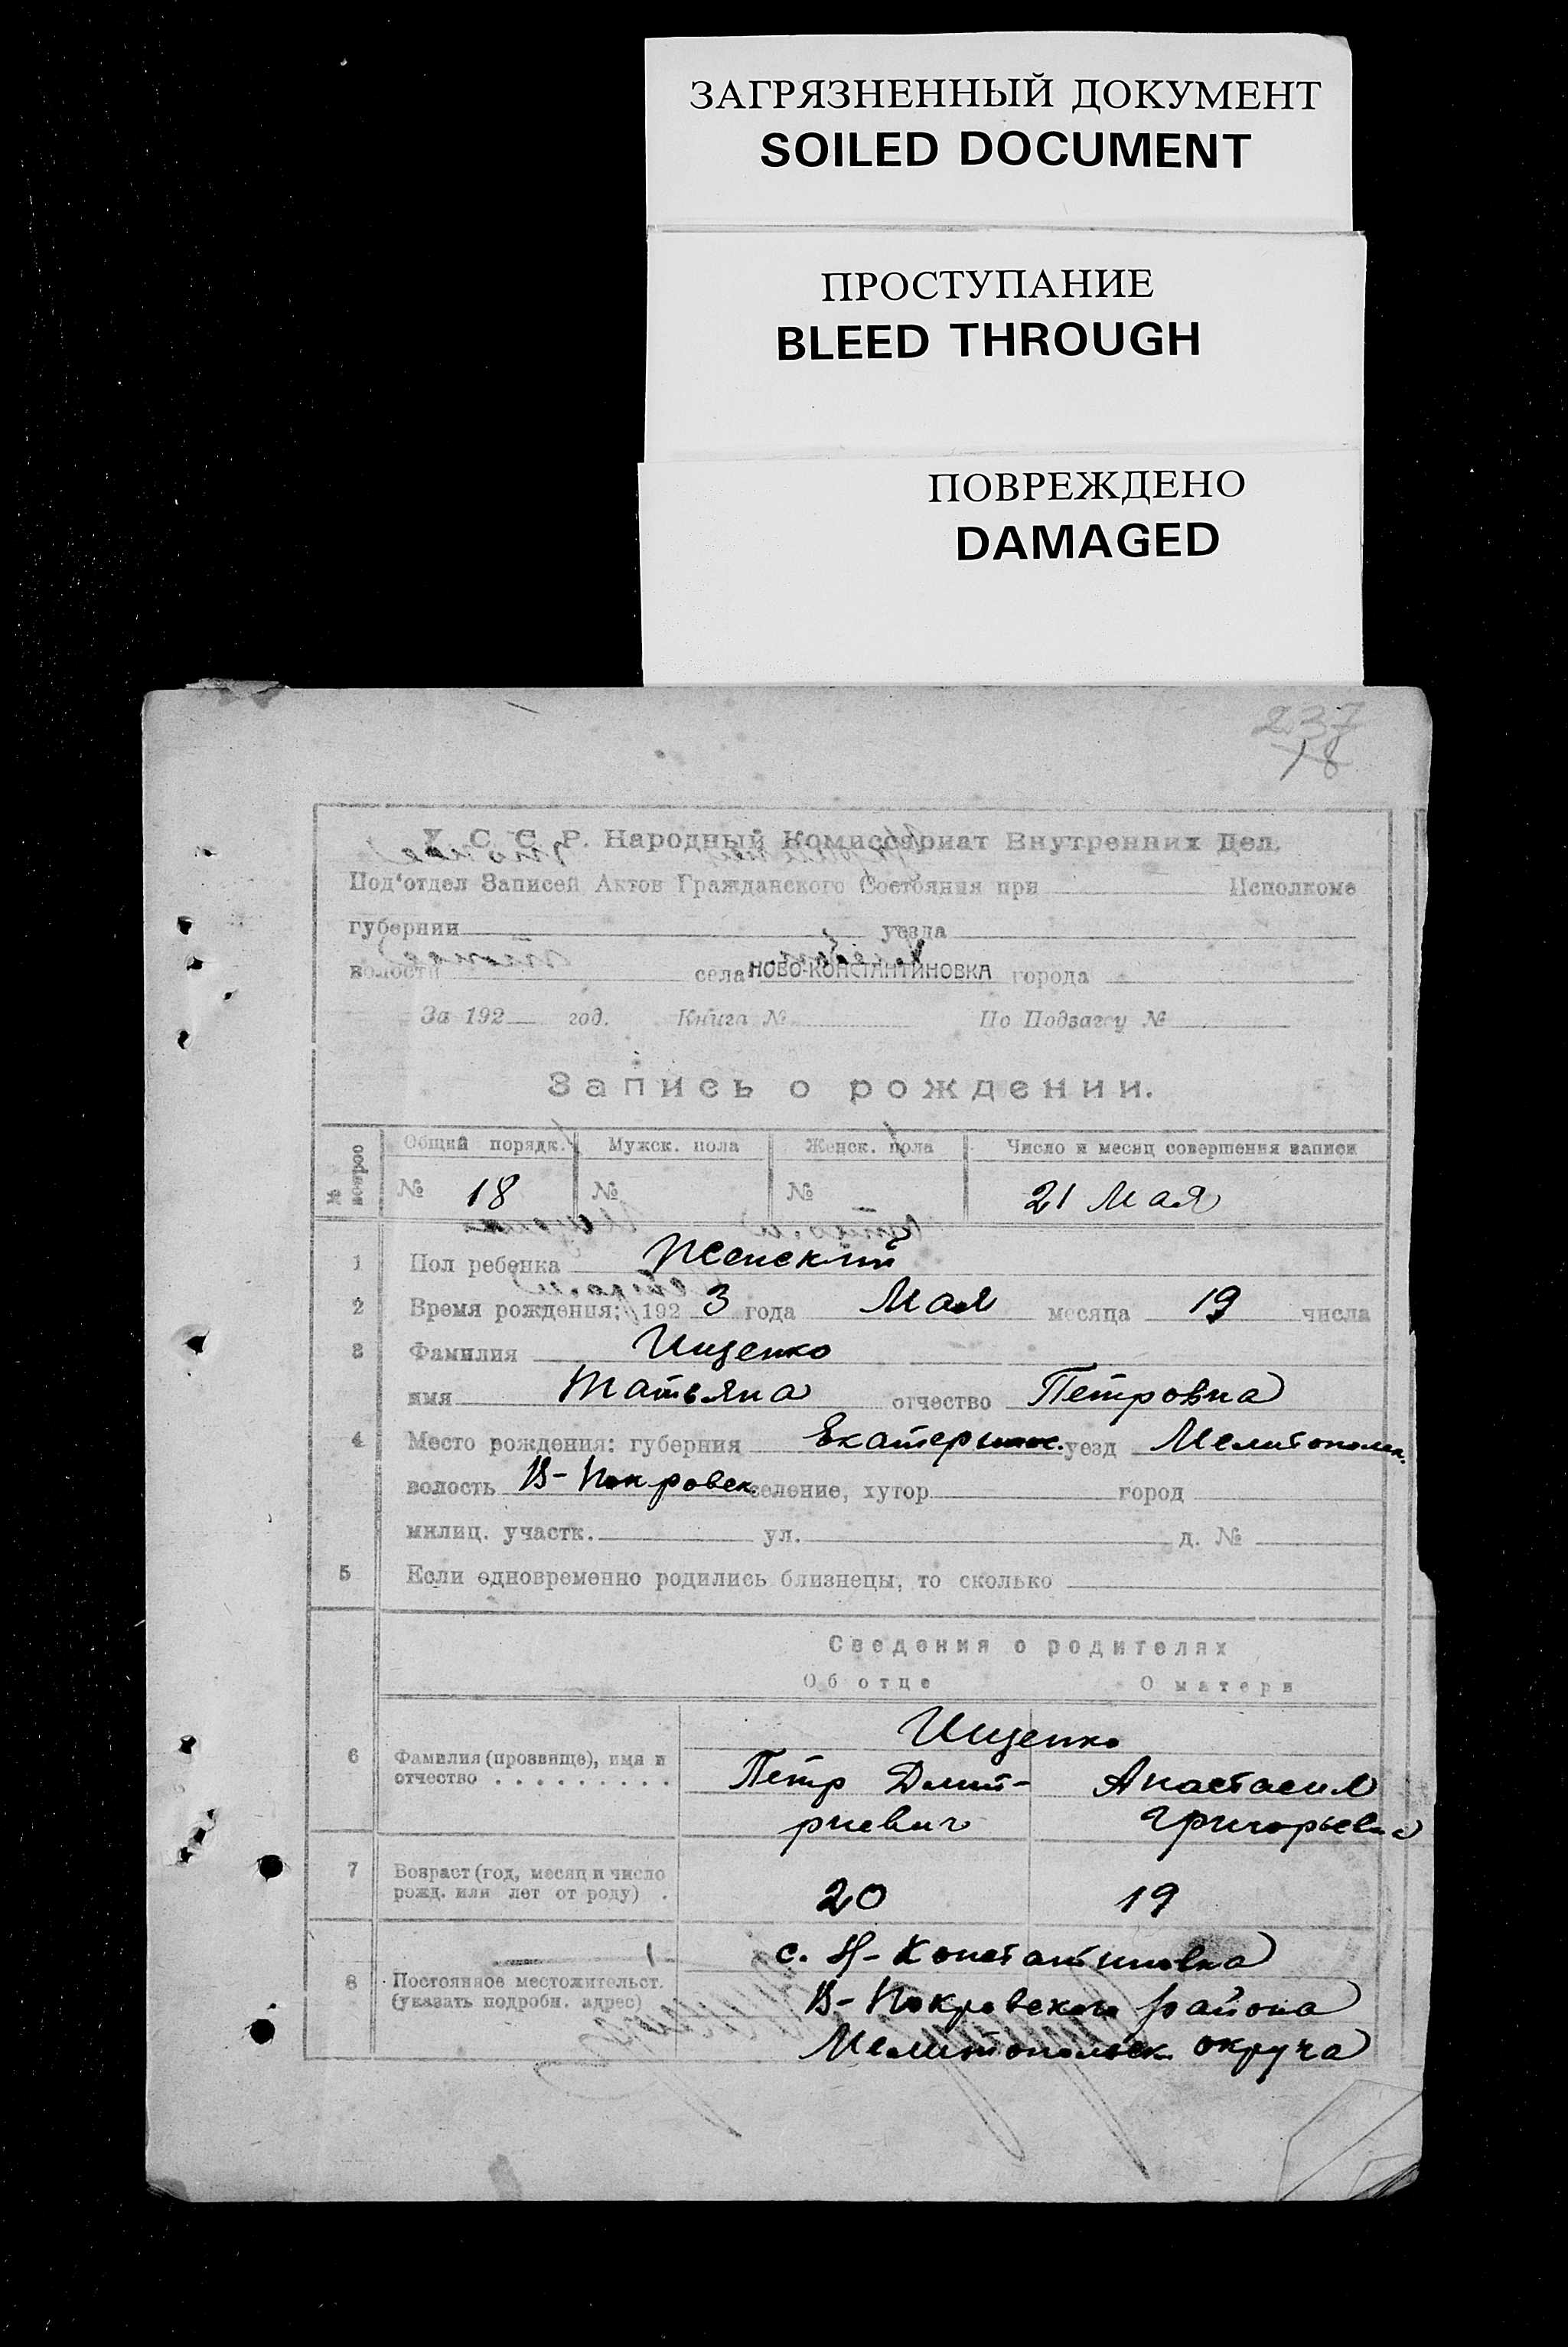 ЗАГРЯЗНЕННЫЙ ДОКУМЕНТ
SOILED DOCUMENT
ПРОСТУПАНИЕ
BLEED THROUGH
ПОВРЕЖДЕНО
DAMAGED
237
18
У. С. С. Р. Народный Комиссариат Внутренних Дел.
Под'отдел Записей Актов Гражданского Состояния при Исполкоме
губернии уезда
волости села НОВО-КОНСТАНТИНОВКА города
За 192 год. Книга № По Подзагсу №
Запись о рождении.
№ вопрос Общий порядк. Мужск. пола Женск. пола Число и месяц совершения записи
№ 18 № № 21 Мая
1 Пол ребенка Женский
2 Время рождения: 192 3 года Мая месяца 19 числа
3 Фамилия Ищенко
имя Татьяна отчество Петровна
4 Место рождения: губерния Екатеринос. уезд Мелитопольск.
волость В-Покровск селение, хутор город
милиц. участк. ул. д. №
5 Если одновременно родились близнецы, то сколько
Сведения о родителях
Об отце О матери
Ищенко
6 Фамилия (прозвище), имя и отчество . . . . . . . . .
Петр Дмит- Анастасия
риевич Григорьевна
7 Возраст (год, месяц и число
рожд. или лет от роду) .
20 19
с. Н-Константиновка
8 Постоянное местожительст.
(указать подробн. адрес)
В-Покровского района
Мелитопольск округа